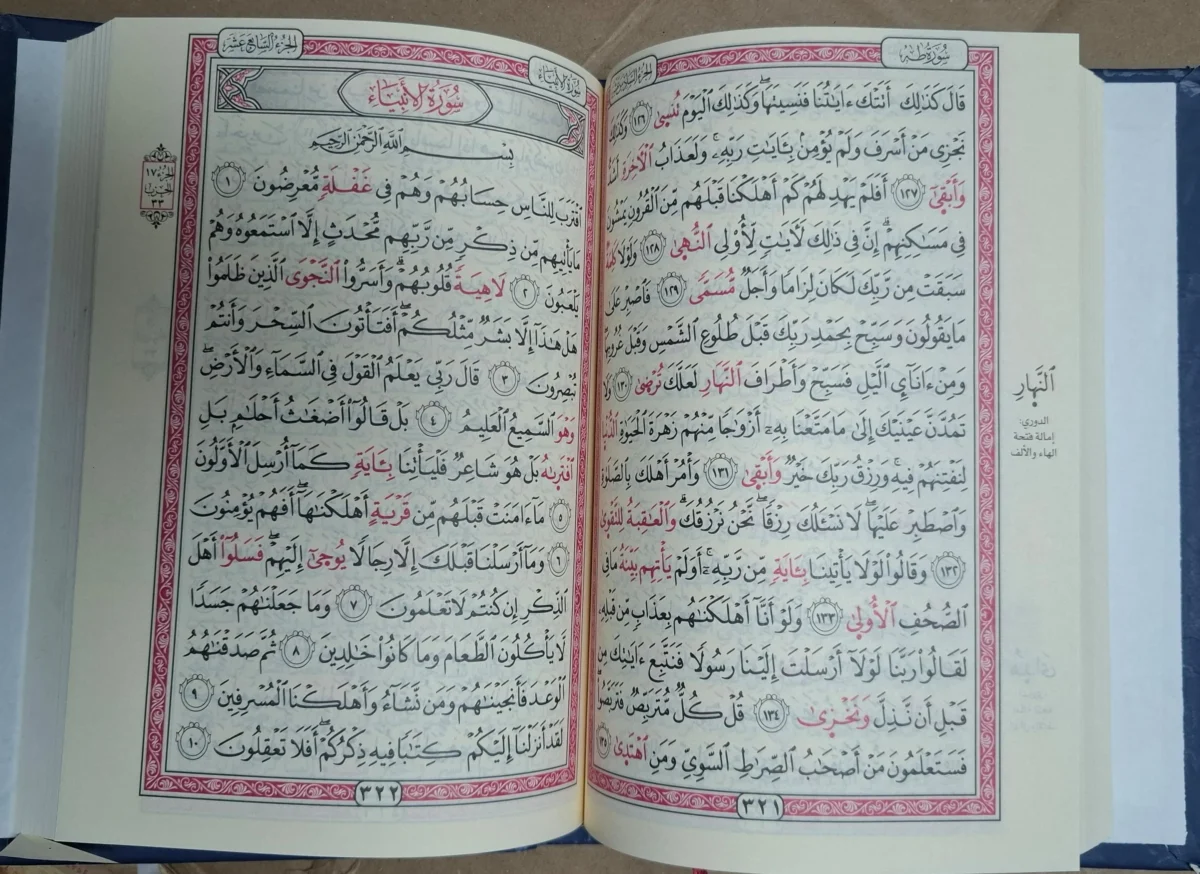 سُورَةُ طه
الجزء السادس عشر
قَالَ كَذَٰلِكَ أَتَتْكَ ءَايَٰتُنَا فَنَسِيتَهَا وَكَذَٰلِكَ ٱلْيَوْمَ تُنسَىٰ ١٢٦ وَكَذَٰلِكَ
نَجْزِى مَنْ أَسْرَفَ وَلَمْ يُؤْمِنۢ بِـَٔايَٰتِ رَبِّهِۦ وَلَعَذَابُ ٱلْءَاخِرَةِ أَشَدُّ
وَأَبْقَىٰٓ ١٢٧ أَفَلَمْ يَهْدِ لَهُمْ كَمْ أَهْلَكْنَا قَبْلَهُم مِّنَ ٱلْقُرُونِ يَمْشُونَ
فِى مَسَٰكِنِهِمْ إِنَّ فِى ذَٰلِكَ لَءَايَٰتٍ لِّأُو۟لِى ٱلنُّهَىٰ ١٢٨ وَلَوْلَا كَلِمَةٌ
سَبَقَتْ مِن رَّبِّكَ لَكَانَ لِزَامًا وَأَجَلٌ مُّسَمًّى ١٢٩ فَٱصْبِرْ عَلَىٰ
مَا يَقُولُونَ وَسَبِّحْ بِحَمْدِ رَبِّكَ قَبْلَ طُلُوعِ ٱلشَّمْسِ وَقَبْلَ غُرُوبِهَا
وَمِنْ ءَانَآئِ ٱلَّيْلِ فَسَبِّحْ وَأَطْرَافَ ٱلنَّهَارِ لَعَلَّكَ تُرْضَىٰ ١٣٠ وَلَا
تَمُدَّنَّ عَيْنَيْكَ إِلَىٰ مَا مَتَّعْنَا بِهِۦٓ أَزْوَٰجًا مِّنْهُمْ زَهْرَةَ ٱلْحَيَوٰةِ ٱلدُّنْيَا
لِنَفْتِنَهُمْ فِيهِ وَرِزْقُ رَبِّكَ خَيْرٌ وَأَبْقَىٰ ١٣١ وَأْمُرْ أَهْلَكَ بِٱلصَّلَوٰةِ
وَٱصْطَبِرْ عَلَيْهَا لَا نَسْـَٔلُكَ رِزْقًا نَّحْنُ نَرْزُقُكَ وَٱلْعَٰقِبَةُ لِلتَّقْوَىٰ
١٣٢ وَقَالُوا۟ لَوْلَا يَأْتِينَا بِـَٔايَةٍ مِّن رَّبِّهِۦٓ أَوَلَمْ يَأْتِهِم بَيِّنَةُ مَا فِى
ٱلصُّحُفِ ٱلْأُولَىٰ ١٣٣ وَلَوْ أَنَّآ أَهْلَكْنَٰهُم بِعَذَابٍ مِّن قَبْلِهِۦ
لَقَالُوا۟ رَبَّنَا لَوْلَآ أَرْسَلْتَ إِلَيْنَا رَسُولًا فَنَتَّبِعَ ءَايَٰتِكَ مِن
قَبْلِ أَن نَّذِلَّ وَنَخْزَىٰ ١٣٤ قُلْ كُلٌّ مُّتَرَبِّصٌ فَتَرَبَّصُوا۟
فَسَتَعْلَمُونَ مَنْ أَصْحَٰبُ ٱلصِّرَٰطِ ٱلسَّوِىِّ وَمَنِ ٱهْتَدَىٰ ١٣٥
٣٢١
ٱلنَّهَارِ
الدوري:
إمالة فتحة
الهاء والألف
الجزء السابع عشر
سورة الأنبياء
سُورَةُ الأَنْبِيَاءِ
بِسْمِ ٱللَّهِ ٱلرَّحْمَٰنِ ٱلرَّحِيمِ
ٱقْتَرَبَ لِلنَّاسِ حِسَابُهُمْ وَهُمْ فِى غَفْلَةٍ مُّعْرِضُونَ ١
مَا يَأْتِيهِم مِّن ذِكْرٍ مِّن رَّبِّهِم مُّحْدَثٍ إِلَّا ٱسْتَمَعُوهُ وَهُمْ
يَلْعَبُونَ ٢ لَاهِيَةً قُلُوبُهُمْ وَأَسَرُّوا۟ ٱلنَّجْوَى ٱلَّذِينَ ظَلَمُوا۟
هَلْ هَٰذَآ إِلَّا بَشَرٌ مِّثْلُكُمْ أَفَتَأْتُونَ ٱلسِّحْرَ وَأَنتُمْ
تُبْصِرُونَ ٣ قَالَ رَبِّى يَعْلَمُ ٱلْقَوْلَ فِى ٱلسَّمَآءِ وَٱلْأَرْضِ
وَهُوَ ٱلسَّمِيعُ ٱلْعَلِيمُ ٤ بَلْ قَالُوٓا۟ أَضْغَٰثُ أَحْلَٰمٍ بَلِ
ٱفْتَرَىٰهُ بَلْ هُوَ شَاعِرٌ فَلْيَأْتِنَا بِـَٔايَةٍ كَمَآ أُرْسِلَ ٱلْأَوَّلُونَ
٥ مَآ ءَامَنَتْ قَبْلَهُم مِّن قَرْيَةٍ أَهْلَكْنَٰهَآ أَفَهُمْ يُؤْمِنُونَ
٦ وَمَآ أَرْسَلْنَا قَبْلَكَ إِلَّا رِجَالًا يُوحَىٰٓ إِلَيْهِمْ فَسَلُوٓا۟ أَهْلَ
ٱلذِّكْرِ إِن كُنتُمْ لَا تَعْلَمُونَ ٧ وَمَا جَعَلْنَٰهُمْ جَسَدًا
لَّا يَأْكُلُونَ ٱلطَّعَامَ وَمَا كَانُوا۟ خَٰلِدِينَ ٨ ثُمَّ صَدَقْنَٰهُمُ
ٱلْوَعْدَ فَأَنجَيْنَٰهُمْ وَمَن نَّشَآءُ وَأَهْلَكْنَا ٱلْمُسْرِفِينَ ٩
لَقَدْ أَنزَلْنَآ إِلَيْكُمْ كِتَٰبًا فِيهِ ذِكْرُكُمْ أَفَلَا تَعْقِلُونَ ١٠
٣٢٢
الجزء ١٧
الحزب
٣٣